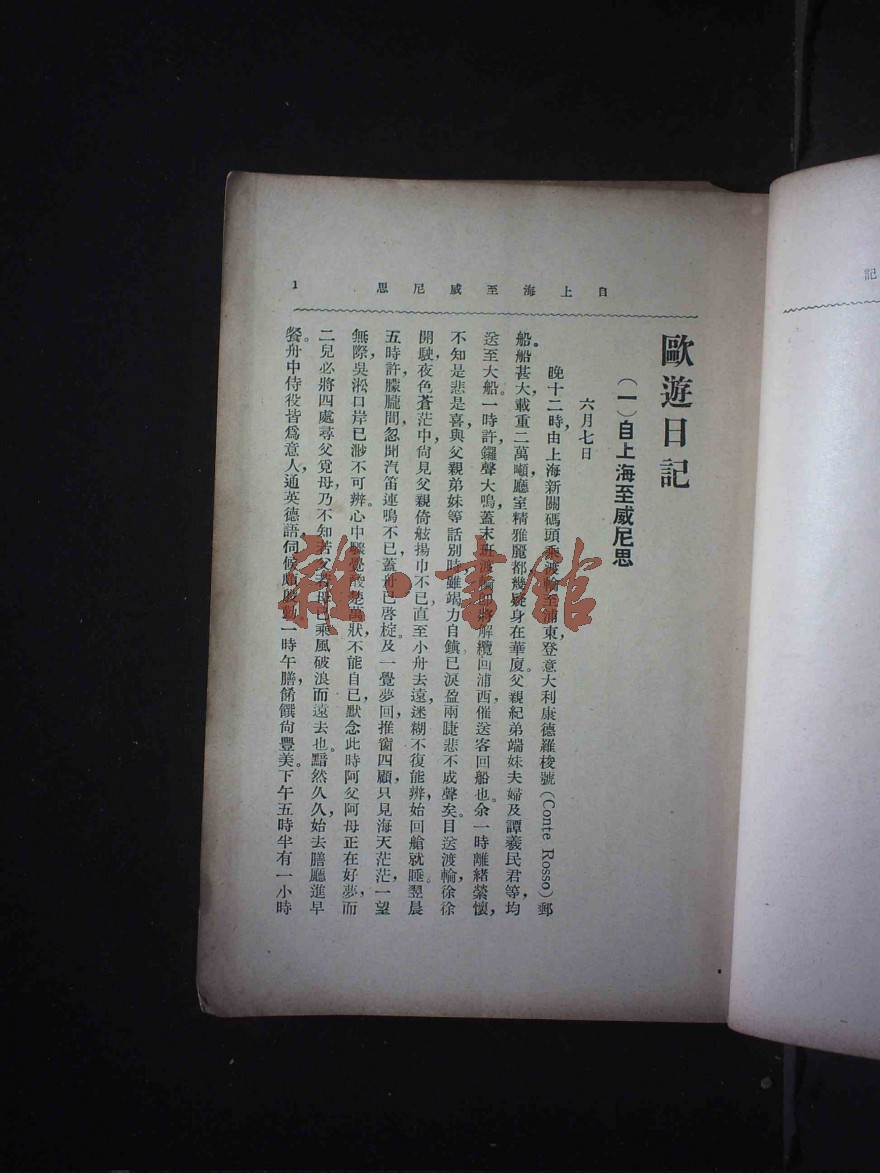 自上海至威尼思
1
歐遊日記
（一）自上海至威尼思
六月七日
晚十二時，由上海新關碼頭乘渡輪至浦東，登意大利康德羅梭號（Conte Rosso）郵
船。船甚大，載重二萬噸，廳室精雅麗都，幾疑身在華廈。父親紀弟端妹夫婦及譚羲民君等，均
送至大船。一時許，鑼聲大鳴，蓋末班渡輪即將解纜回浦西，催送客回船也。余一時離緒縈懷，
不知是悲是喜，與父親弟妹等話別時，雖竭力自鎮，已淚盈兩睫，悲不成聲矣。目送渡輪，徐徐
開駛，夜色蒼茫中，尙見父親倚舷揚巾不已，直至小舟去遠，迷糊不復能辨，始回艙就睡。翌晨
五時許，朦朧間，忽聞汽笛連鳴不已，蓋舟已啓椗。及一覺夢回，推窗四顧，只見海天茫茫，一望
無際，吳淞口岸已渺不可辨。心中驟覺酸楚萬狀，不能自已，默念此時阿父阿母正在好夢，而
二兒必將四處尋父覓母，乃不知若父若母已乘風破浪而遠去也。黯然久久，始去膳廳進早
餐。舟中侍役皆爲意人，通英德語，伺候頗殷勤。一時午膳，餚饌尙豐美。下午五時半有一小時
記